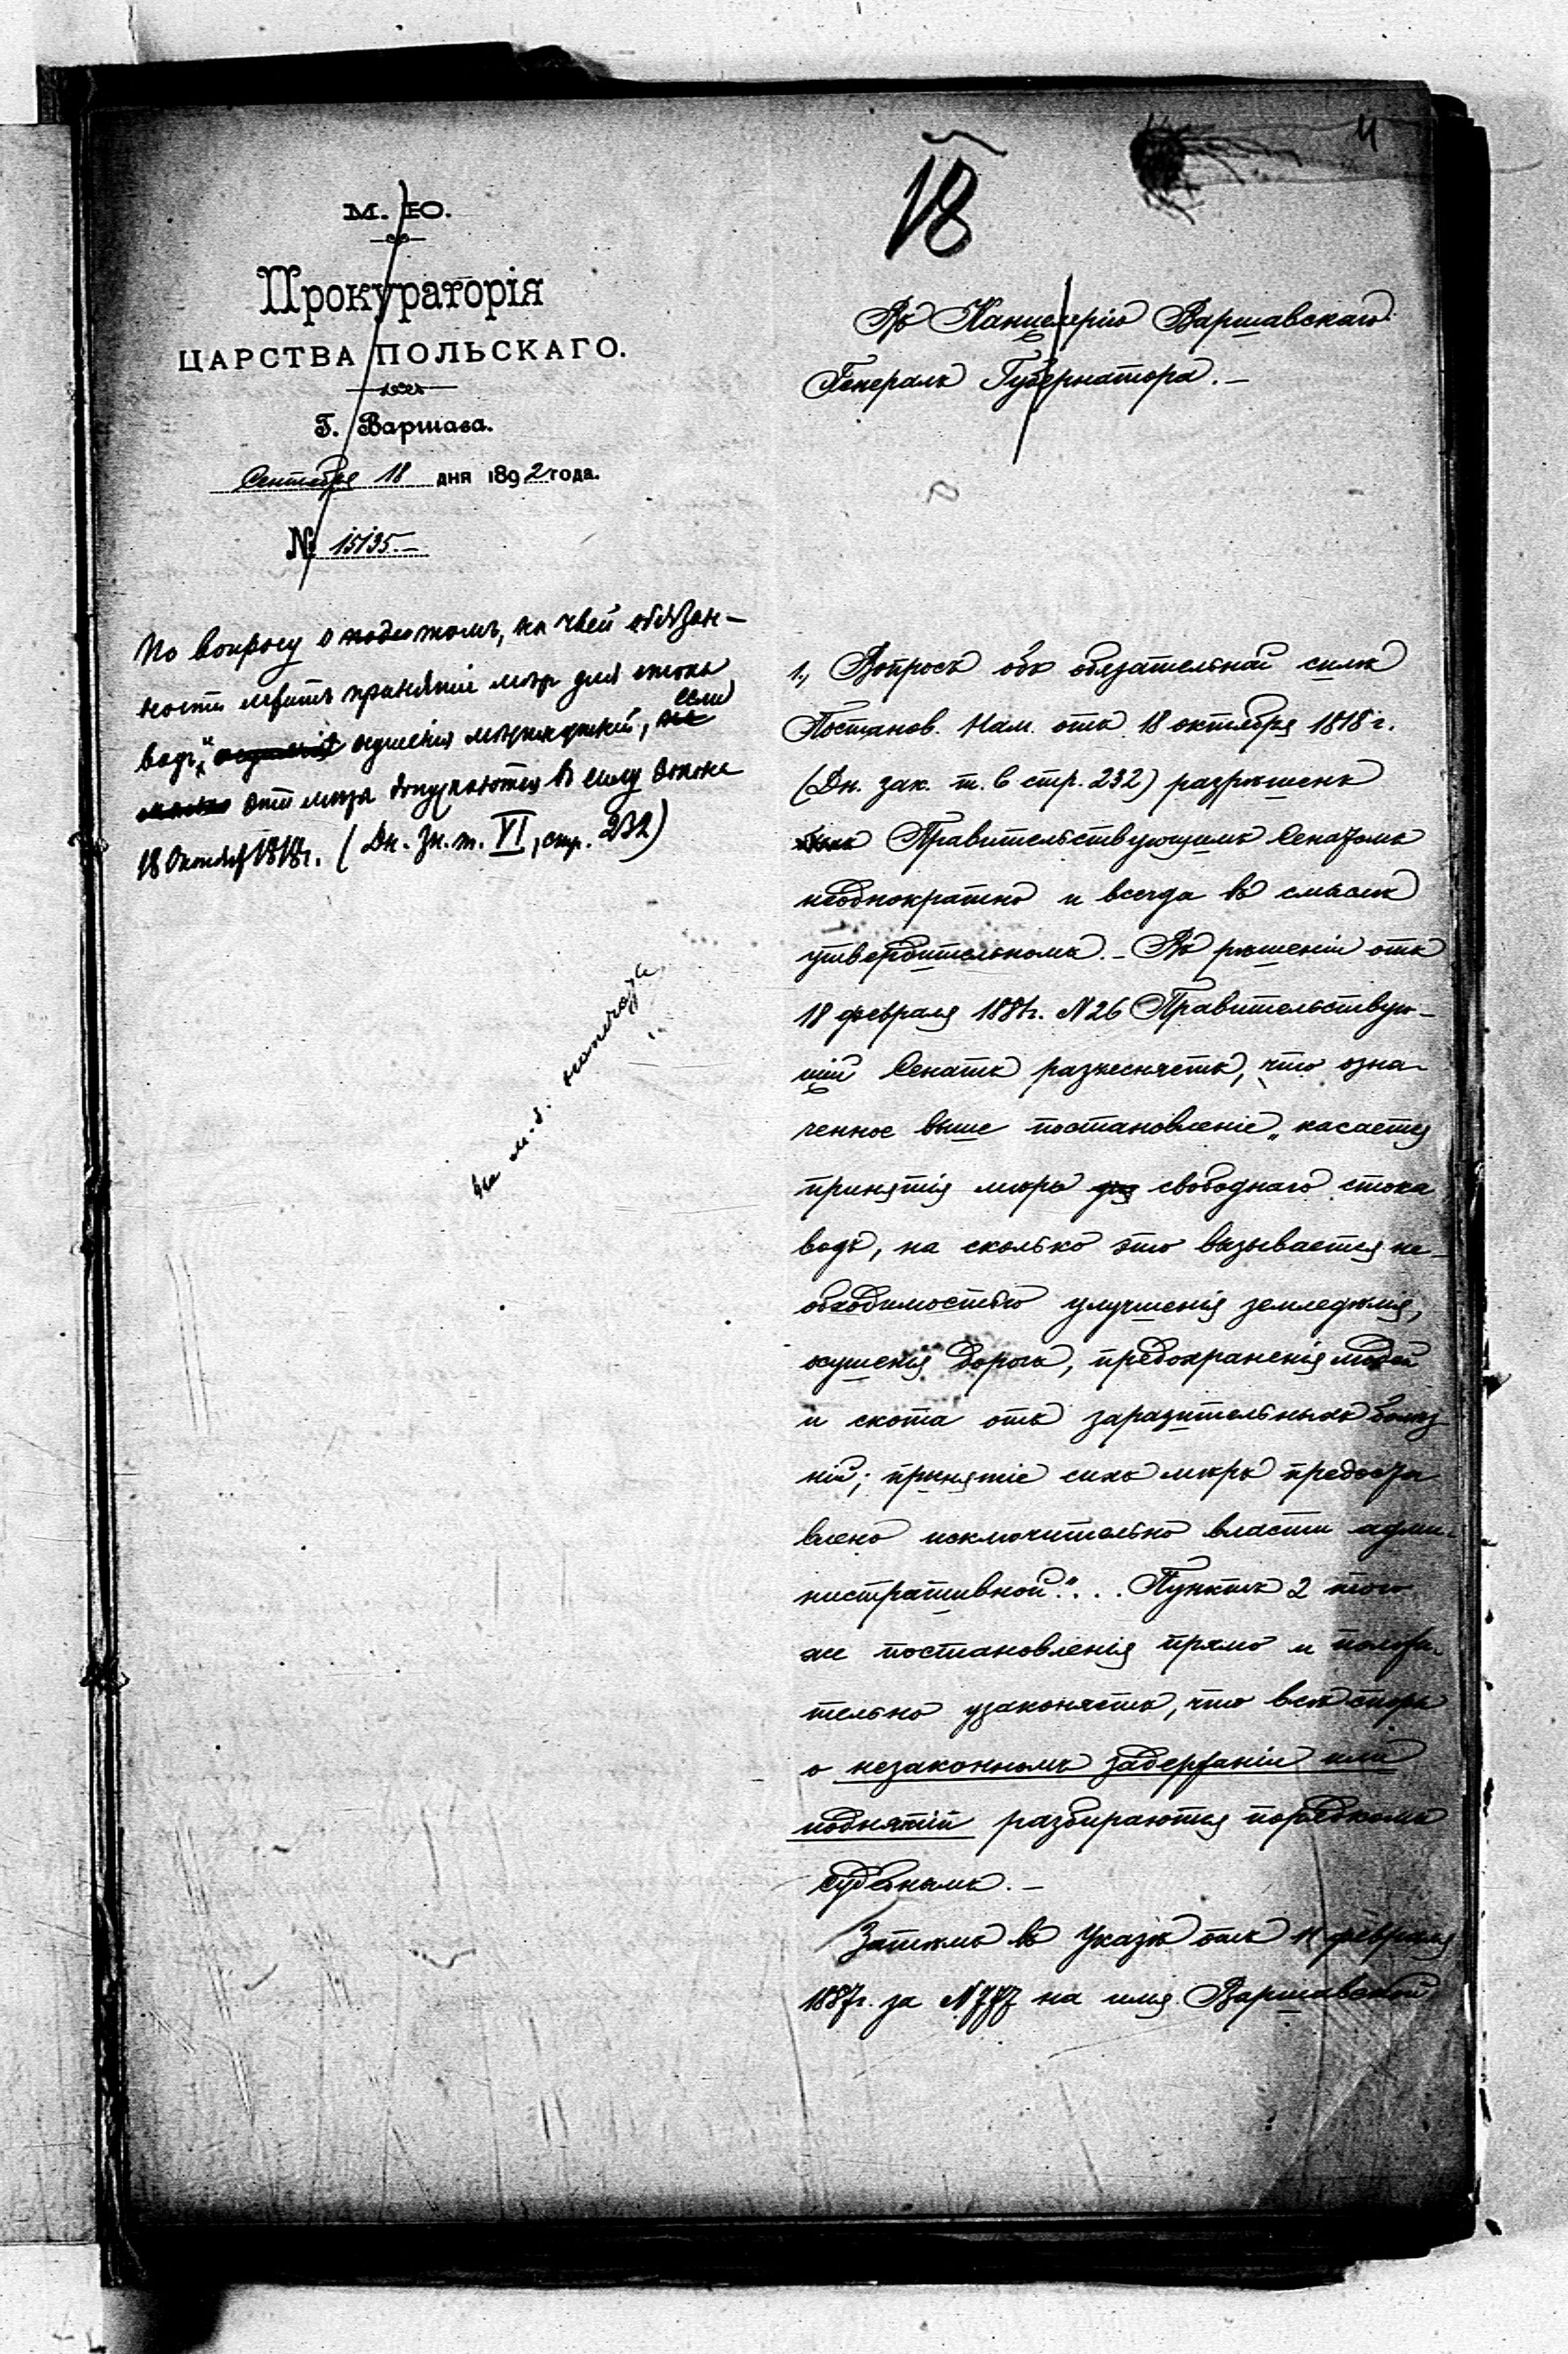 18
М. Ю.
Прокураторія
ЦАРСТВА ПОЛЬСКАГО.
Г. Варшава.
Сентября 18 дня 1892 года.
№ 15135.—
По вопросу о томъ, на чьей обязан-
ности лежитъ принятіе мѣр для стока
водъ и осушенія мѣстностей, если
эти мѣры допускаются въ силу закона
18 Октября 1818 г. (Дн. Зк. т. VI, стр. 232)
Въ Канцелярію Варшавскаго
Генералъ Губернатора.—
1., Вопросъ объ обязательной силѣ
Постанов. Нам. отъ 18 октября 1818 г.
(Дн. зак. т. 6 стр. 232) разрѣшенъ
Правительствующимъ Сенатомъ
неоднократно и всегда въ смыслѣ
утвердительномъ.— Въ рѣшеніи отъ
18 февраля 1881 г. N 26 Правительствую-
щій Сенатъ разъясняетъ, что озна-
ченное выше постановленіе „касается
принятія мѣръ для свободнаго стока
водъ, на сколько это вызывается не-
обходимостью улучшенія земледѣлія,
осушенія дорогъ, предохраненія людей
и скота отъ заразительныхъ болѣз
ній; принятіе сихъ мѣръ предоста
влено исключительно власти адми-
нистративной."... Пунктъ 2 того
же постановленія прямо и положи-
тельно узаконяетъ, что всѣ споры
о незаконномъ задержаніи или
поднятіи разбираются порядкомъ
судебнымъ.—
Затѣмъ въ Указѣ отъ 11 февраля
1887 г. за N 777 на имя Варшавской